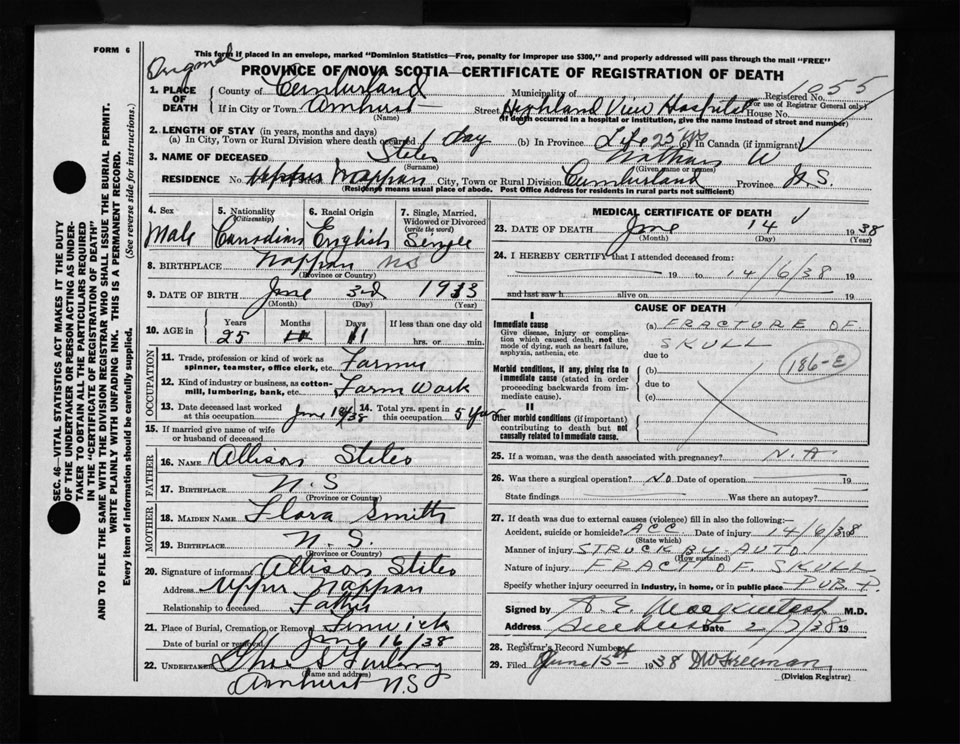 FORM 6
Original
This form if placed in an envelope, marked "Dominion Statistics—Free, penalty for improper use $300," and properly addressed will pass through the mail "FREE"
PROVINCE OF NOVA SCOTIA—CERTIFICATE OF REGISTRATION OF DEATH
1. PLACE OF DEATH
County of Cumberland Municipality of Registered No. 055
(For use of Registrar General only)
If in City or Town Amherst Street Highland View Hospital House No.
(Name) (If death occurred in a hospital or institution, give the name instead of street and number)
2. LENGTH OF STAY (in years, months and days)
(a) In City, Town or Rural Division where death occurred 1 day (b) In Province Life 25 yrs (c) In Canada (if immigrant)
3. NAME OF DECEASED Stiles Nathan W
(Surname) (Given name or names)
RESIDENCE No. Upper Nappan City, Town or Rural Division Cumberland Province N.S.
(Residence means usual place of abode. Post Office Address for residents in rural parts not sufficient)
SEC. 46—VITAL STATISTICS ACT MAKES IT THE DUTY
OF THE UNDERTAKER OR PERSON ACTING AS UNDER-
TAKER TO OBTAIN ALL THE PARTICULARS REQUIRED
IN THE "CERTIFICATE OF REGISTRATION OF DEATH"
AND TO FILE THE SAME WITH THE DIVISION REGISTRAR WHO SHALL ISSUE THE BURIAL PERMIT.
WRITE PLAINLY WITH UNFADING INK. THIS IS A PERMANENT RECORD.
Every item of information should be carefully supplied. (See reverse side for instructions.)
4. Sex 5. Nationality (Citizenship) 6. Racial Origin 7. Single, Married, Widowed or Divorced (write the word)
Male Canadian English Single
8. BIRTHPLACE Nappan NS
(Province or Country)
9. DATE OF BIRTH June 3rd 1913
(Month) (Day) (Year)
10. AGE in Years Months Days If less than one day old
25 11 hrs. or min.
OCCUPATION
11. Trade, profession or kind of work as spinner, teamster, office clerk, etc. Farmer
12. Kind of industry or business, as cotton-mill, lumbering, bank, etc. Farm Work
13. Date deceased last worked at this occupation June 14/38 14. Total yrs. spent in this occupation 5 Years
15. If married give name of wife or husband of deceased
FATHER
16. NAME Allison Stiles
17. BIRTHPLACE N.S
(Province or Country)
MOTHER
18. MAIDEN NAME Flora Smith
19. BIRTHPLACE N.S.
(Province or Country)
20. Signature of informant Allison Stiles
Address Upper Nappan
Relationship to deceased Father
21. Place of Burial, Cremation or Removal Fenwick
Date of burial or removal June 16/38
22. UNDERTAKER Furlong
(Name and address)
Amherst N.S
MEDICAL CERTIFICATE OF DEATH
23. DATE OF DEATH June 14 1938
(Month) (Day) (Year)
24. I HEREBY CERTIFY that I attended deceased from:
19 to 14/6/38 19
and last saw h alive on 19
CAUSE OF DEATH
I
Immediate cause
Give disease, injury or complication which caused death, not the mode of dying, such as heart failure, asphyxia, asthenia, etc
(a) FRACTURE OF SKULL
due to
186-E
Morbid conditions, if any, giving rise to immediate cause (stated in order proceeding backwards from immediate cause).
(b)
due to
(c)
II
Other morbid conditions (if important) contributing to death but not causally related to immediate cause.
25. If a woman, was the death associated with pregnancy? N.A.
26. Was there a surgical operation? NO Date of operation 19
State findings Was there an autopsy?
27. If death was due to external causes (violence) fill in also the following:—
Accident, suicide or homicide? ACC. Date of injury 14/6/38 19
(State which)
Manner of injury STRUCK BY AUTO
(How sustained)
Nature of injury FRACT OF SKULL
Specify whether injury occurred in industry, in home, or in public place PUB. P.
Signed by A E Mackintosh M.D.
Address Amherst Date 2/7/38 19
28. Registrar's Record Number
29. Filed June 15th 1938 Freeman
(Division Registrar)